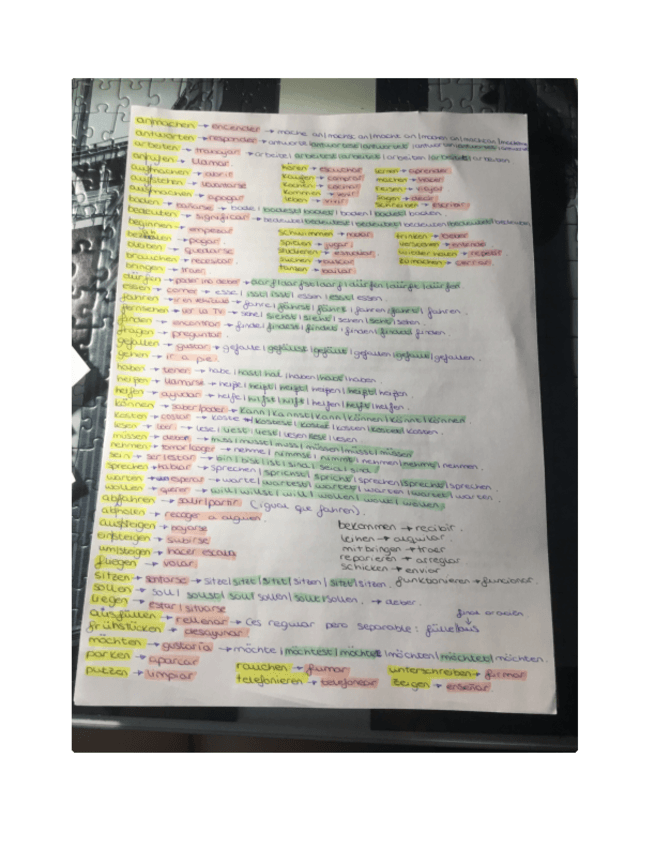 anmachen → encender → mache an | machst an | macht an | machen an | macht an | machen
antworten → responder → antworte | antwortest | antwortet | antworten | antwortet | antworten
arbeiten → trabajar → arbeite | arbeitest | arbeitet | arbeiten | arbeitet | arbeiten
anrufen → llamar
aufmachen → abrir
aufstehen → levantarse
ausmachen → apagar
hören → escuchar
kaufen → comprar
kochen → cocinar
kommen → venir
leben → vivir
lernen → aprender
machen → hacer
reisen → viajar
sagen → decir
schreiben → escribir
baden → bañarse → bade | badest | badet | baden | badet | baden
bedeuten → significar → bedeute | bedeutest | bedeutet | bedeuten | bedeutet | bedeuten
beginnen → empezar
bezahlen → pagar
bleiben → quedarse
brauchen → necesitar
bringen → traer
schwimmen → nadar
spielen → jugar
studieren → estudiar
suchen → buscar
tanzen → bailar
trinken → beber
verstehen → entender
wiederholen → repetir
zumachen → cerrar
dürfen → poder (no deber) → darf | darfst | darf | dürfen | dürft | dürfen
essen → comer → esse | isst | isst | essen | esst | essen
fahren → ir en vehículo → fahre | fährst | fährt | fahren | fahrt | fahren
fernsehen → ver la TV → sehe | siehst | sieht | sehen | seht | sehen
finden → encontrar → finde | findest | findet | finden | findet | finden
fragen → preguntar
gefallen → gustar → gefalle | gefällst | gefällt | gefallen | gefallt | gefallen
gehen → ir a pie
haben → tener → habe | hast | hat | haben | habt | haben
heißen → llamarse → heiße | heißt | heißt | heißen | heißt | heißen
helfen → ayudar → helfe | hilfst | hilft | helfen | helft | helfen
können → saber/poder → kann | kannst | kann | können | könnt | können
kosten → costar → koste | kostest | kostet | kosten | kostet | kosten
lesen → leer → lese | liest | liest | lesen | lest | lesen
müssen → deber → muss | musst | muss | müssen | müsst | müssen
nehmen → tomar/coger → nehme | nimmst | nimmt | nehmen | nehmt | nehmen
sein → ser/estar → bin | bist | ist | sind | seid | sind
sprechen → hablar → sprechen | sprichst | spricht | sprechen | sprecht | sprechen
warten → esperar → warte | wartest | wartet | warten | wartet | warten
wollen → querer → will | willst | will | wollen | wollt | wollen
abfahren → salir/partir (igual que fahren).
abholen → recoger a alguien
aussteigen → bajarse
einsteigen → subirse
umsteigen → hacer escala
fliegen → volar
bekommen → recibir
leihen → alquilar
mitbringen → traer
reparieren → arreglar
schicken → enviar
sitzen → sentarse → sitze | sitzt | sitzt | sitzen | sitzt | sitzen. funktionieren → funcionar
sollen → soll | sollst | soll | sollen | sollt | sollen. → deber
liegen → estar | situarse
final oración
ausfüllen → rellenar → (es regular pero separable: fülle | aus
frühstücken → desayunar
möchten → gustaría → möchte | möchtest | möchte | möchten | möchtet | möchten
parken → aparcar
putzen → limpiar
rauchen → fumar
telefonieren → telefonear
unterschreiben → firmar
zeigen → enseñar